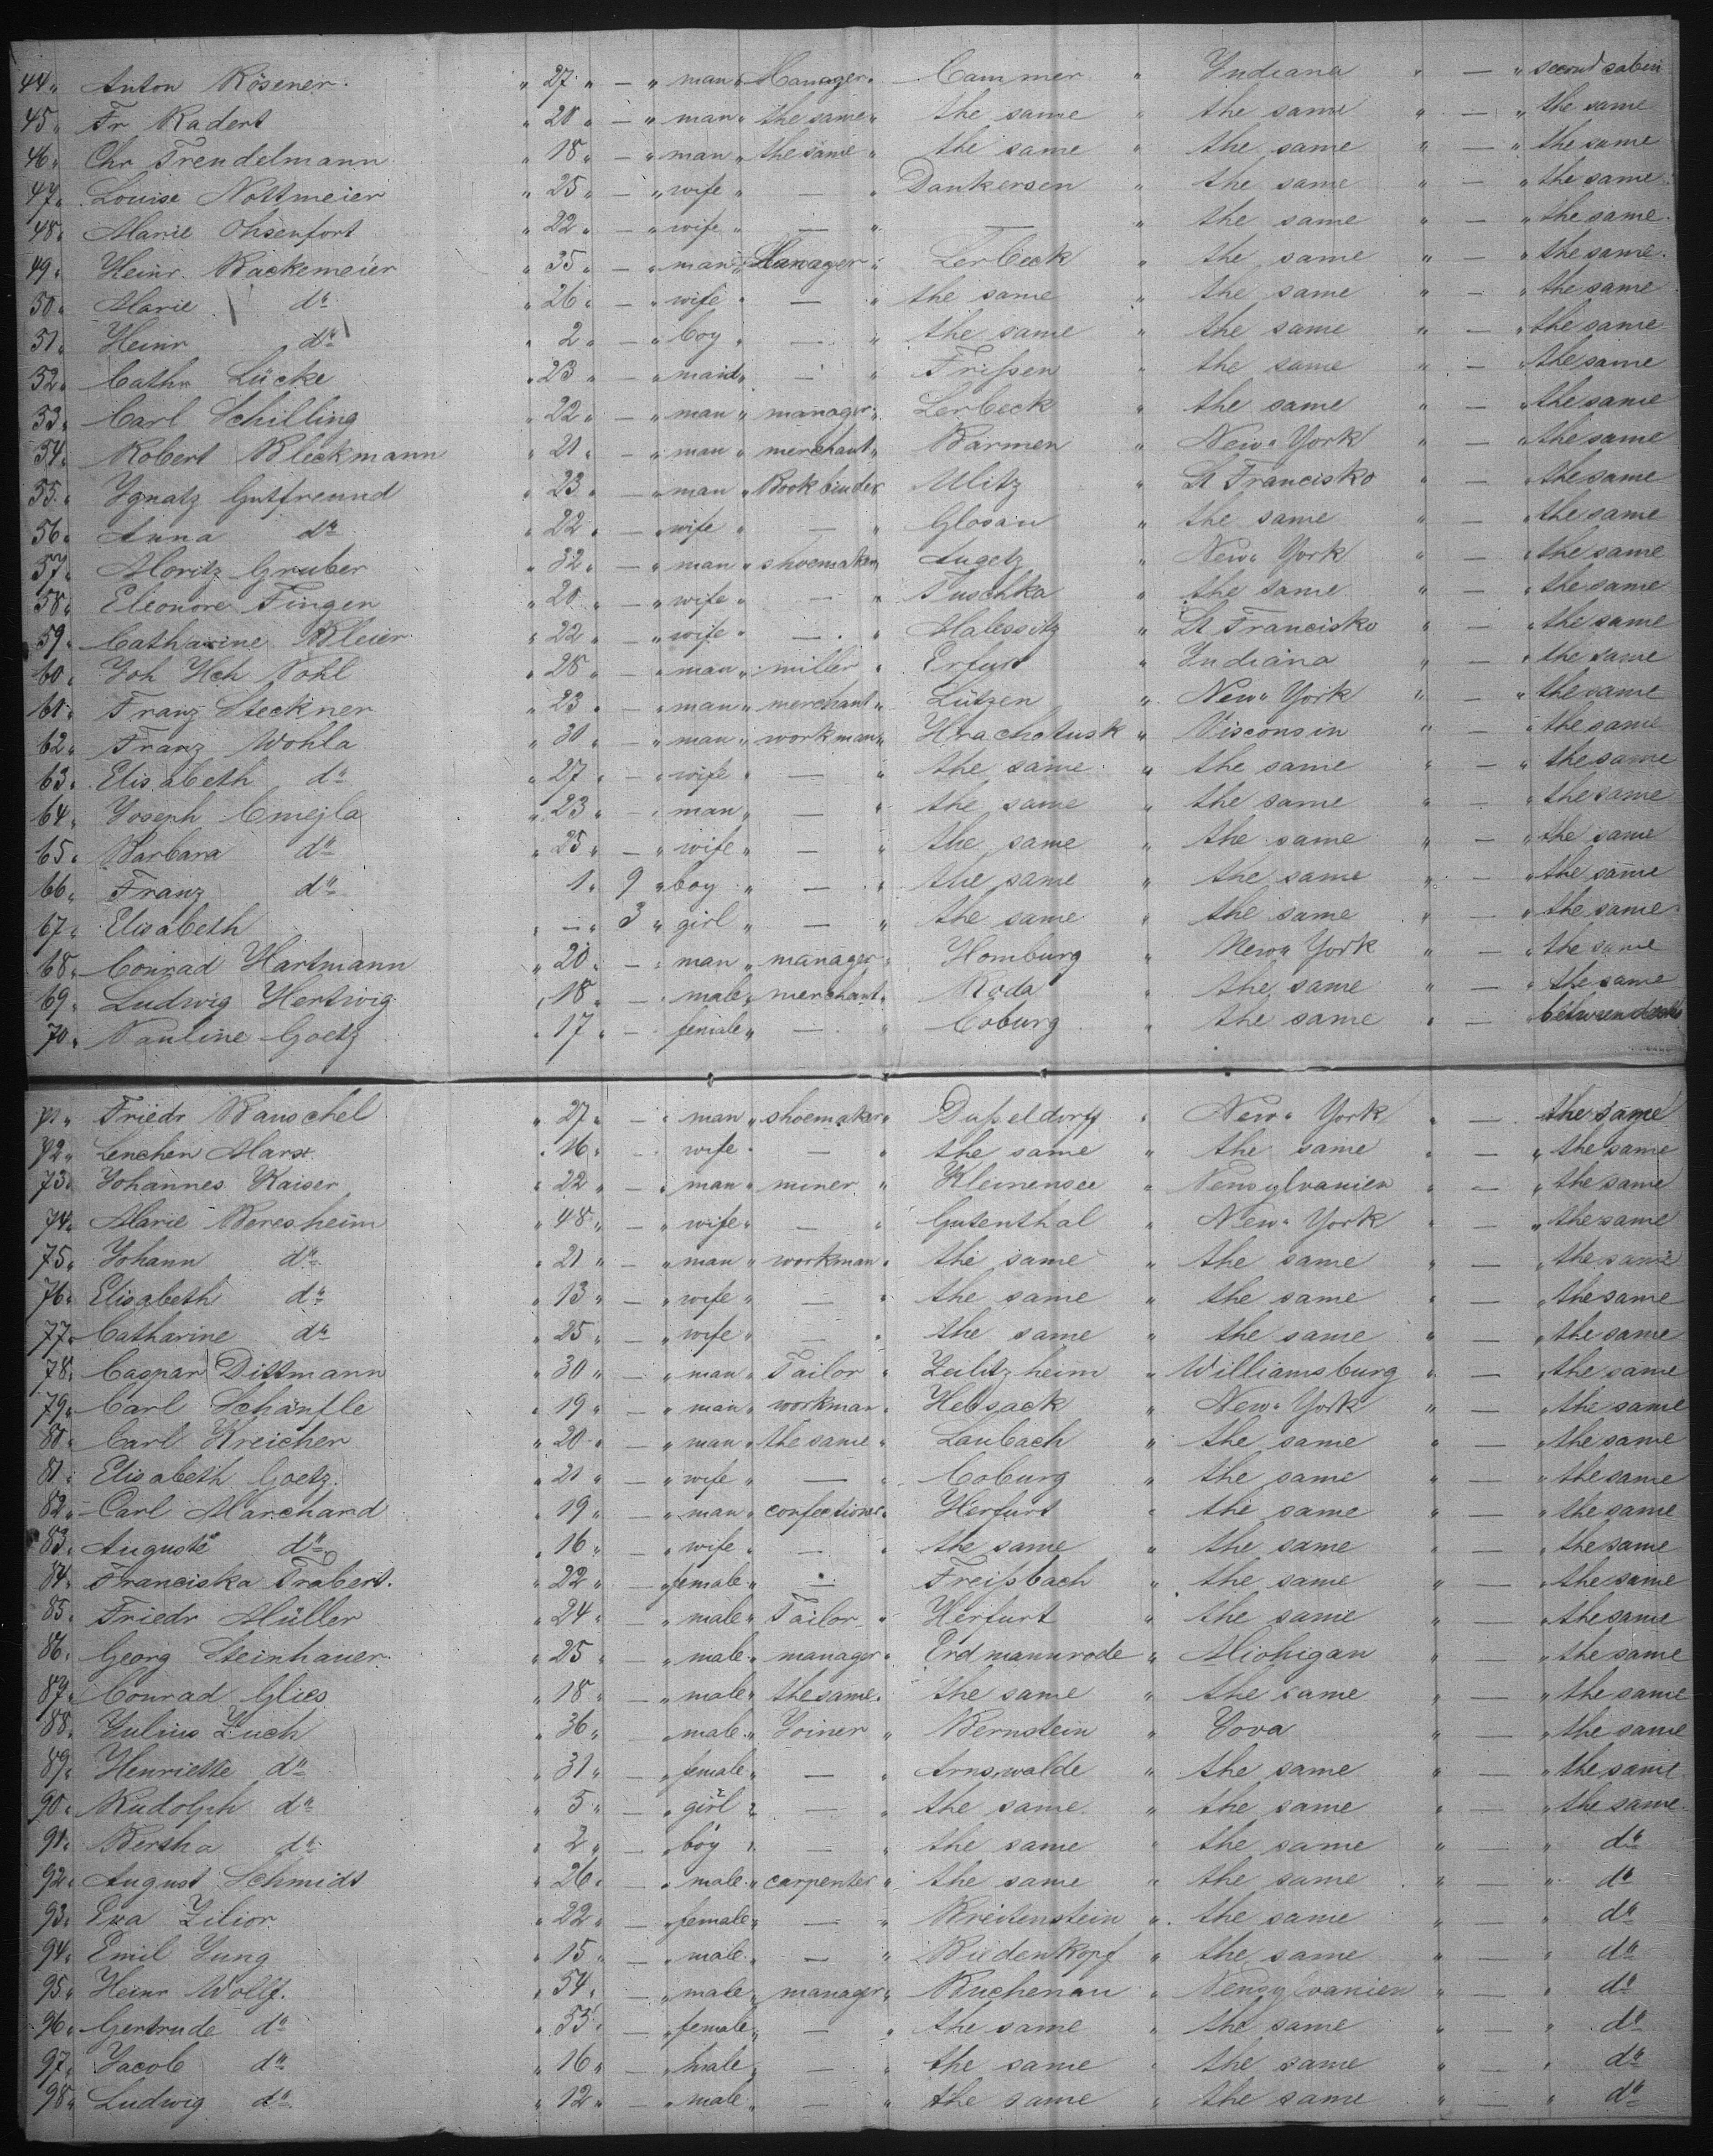 44 Anton Rösener. " 27 " — " man " Manager " Cammer " Indiana " — " second cabin
45 Fr Radert " 20 " — " man " the same " the same " the same " — " the same
46 Chr Trendelmann " 18 " — " man " the same " the same " the same " — " the same
47 Louise Nottmeier " 25 " — " wife " — " Dankersen " the same " — " the same
48 Marie Ohsenfort " 22 " — " wife " — " — " the same " — " the same
49 Heinr. Backemeier " 35 " — " man " Manager " Lerbeck " the same " — " the same
50 Marie do " 26 " — " wife " — " the same " the same " — " the same
51 Heinr do " 2 " — " boy " — " the same " the same " — " the same
52 Cathr Lücke " 23 " — " maid " — " Frißen " the same " — " the same
53 Carl Schilling " 22 " — " man " manager " Lerbeck " the same " — " the same
54 Robert Bleckmann " 21 " — " man " merchant " Barmen " New York " — " the same
55 Ygnatz Gutfreund " 23 " — " man " Bookbinder Ulitz " St Francisko " — " the same
56 Anna do " 22 " — " wife " — " Glosau " the same " — " the same
57 Moritz Gruber " 32 " — " man " shoemaker Augetz " New York " — " the same
58 Eleonore Finger " 20 " — " wife " — " Tuschka " the same " — " the same
59 Catharine Bleier " 22 " — " wife " — " Malessitz " St Francisko " — " the same
60 Joh Hch Pohl " 28 " — " man " miller " Erfurt " Indiana " — " the same
61 Franz Steckner " 23 " — " man " merchant " Lützen " New York " — " the same
62 Franz Wohla " 30 " — " man " workman " Hrachotusk " Visconsin " — " the same
63 Elisabeth do " 27 " — " wife " — " the same " the same " — " the same
64 Joseph Cmejla " 23 " — " man " — " the same " the same " — " the same
65 Barbara do " 25 " — " wife " — " the same " the same " — " the same
66 Franz do 1 " 9 " boy " — " the same " the same " — " the same
67 Elisabeth " — " 3 " girl " — " the same " the same " — " the same
68 Conrad Hartmann " 20 " — " man " manager " Homburg " New York " — " the same
69 Ludwig Hertwig " 18 " — " male " merchant " Roda " the same " — " the same
70 Pauline Goetz " 17 " — " female " — " Coburg " the same " — " between decks
71 Friedr Bauschel " 27 " — " man " shoemaker " Dußeldorff " New York " — " the same
72 Lenchen Marx " 16 " — " wife " — " the same " the same " — " the same
73 Johannes Kaiser " 22 " — " man " miner " Kleinensee " Pensylvanien " — " the same
74 Marie Beresheim " 48 " — " wife " — " Gutenthal " New York " — " the same
75 Johann do " 21 " — " man " workman " the same " the same " — " the same
76 Elisabeth do " 13 " — " wife " — " the same " the same " — " the same
77 Catharine do " 25 " — " wife " — " the same " the same " — " the same
78 Caspar Dittmann " 30 " — " man " Tailor " Zeilitzheim " Williamsburg " — " the same
79 Carl Schäufle " 19 " — " man " workman " Hebsack " New York " — " the same
80 Carl Kreicher " 20 " — " man " the same " Laubach " the same " — " the same
81 Elisabeth Goetz. " 21 " — " wife " — " Coburg " the same " — " the same
82 Carl Marchard " 19 " — " man " confectioner " Herfurt " the same " — " the same
83 Auguste do " 16 " — " wife " — " the same " the same " — " the same
84 Franciska Trabert. " 22 " — " female " — Freißbach " the same " — " the same
85 Friedr Müller " 24 " — " male " Tailor " Herfurt " the same " — " the same
86 Georg Steinhauer " 25 " — " male " manager " Erdmannrode " Michigan " — " the same
87 Conrad Glies " 18 " — " male " the same " the same " the same " — " the same
88 Julius Zuch " 36 " — " male " Joiner " Bernstein " Yova " — " the same
89 Henriette do " 31 " — " female " — " Arnswalde " the same " — " the same
90 Rudolph do " 5 " — " girl " — " the same " the same " — " the same
91 Bertha do " 2 " — " boy " — " the same " the same " — " do
92 August Schmidt " 26 " — " male " carpenter " the same " the same " — " do
93 Eva Zilior " 22 " — " female " — " Breitenstein " the same " — " do
94 Emil Jung " 15 " — " male " — " Biedenkopf " the same " — " do
95 Heinr Wolff. " 54 " — " male " manager " Buchenau " Pensylvanien " — " do
96 Gertrude do " 55 " — " female " — " the same " the same " — " do
97 Jacob do " 16 " — " male " — " the same " the same " — " do
98 Ludwig do " 12 " — " male " — " the same " the same " — " do